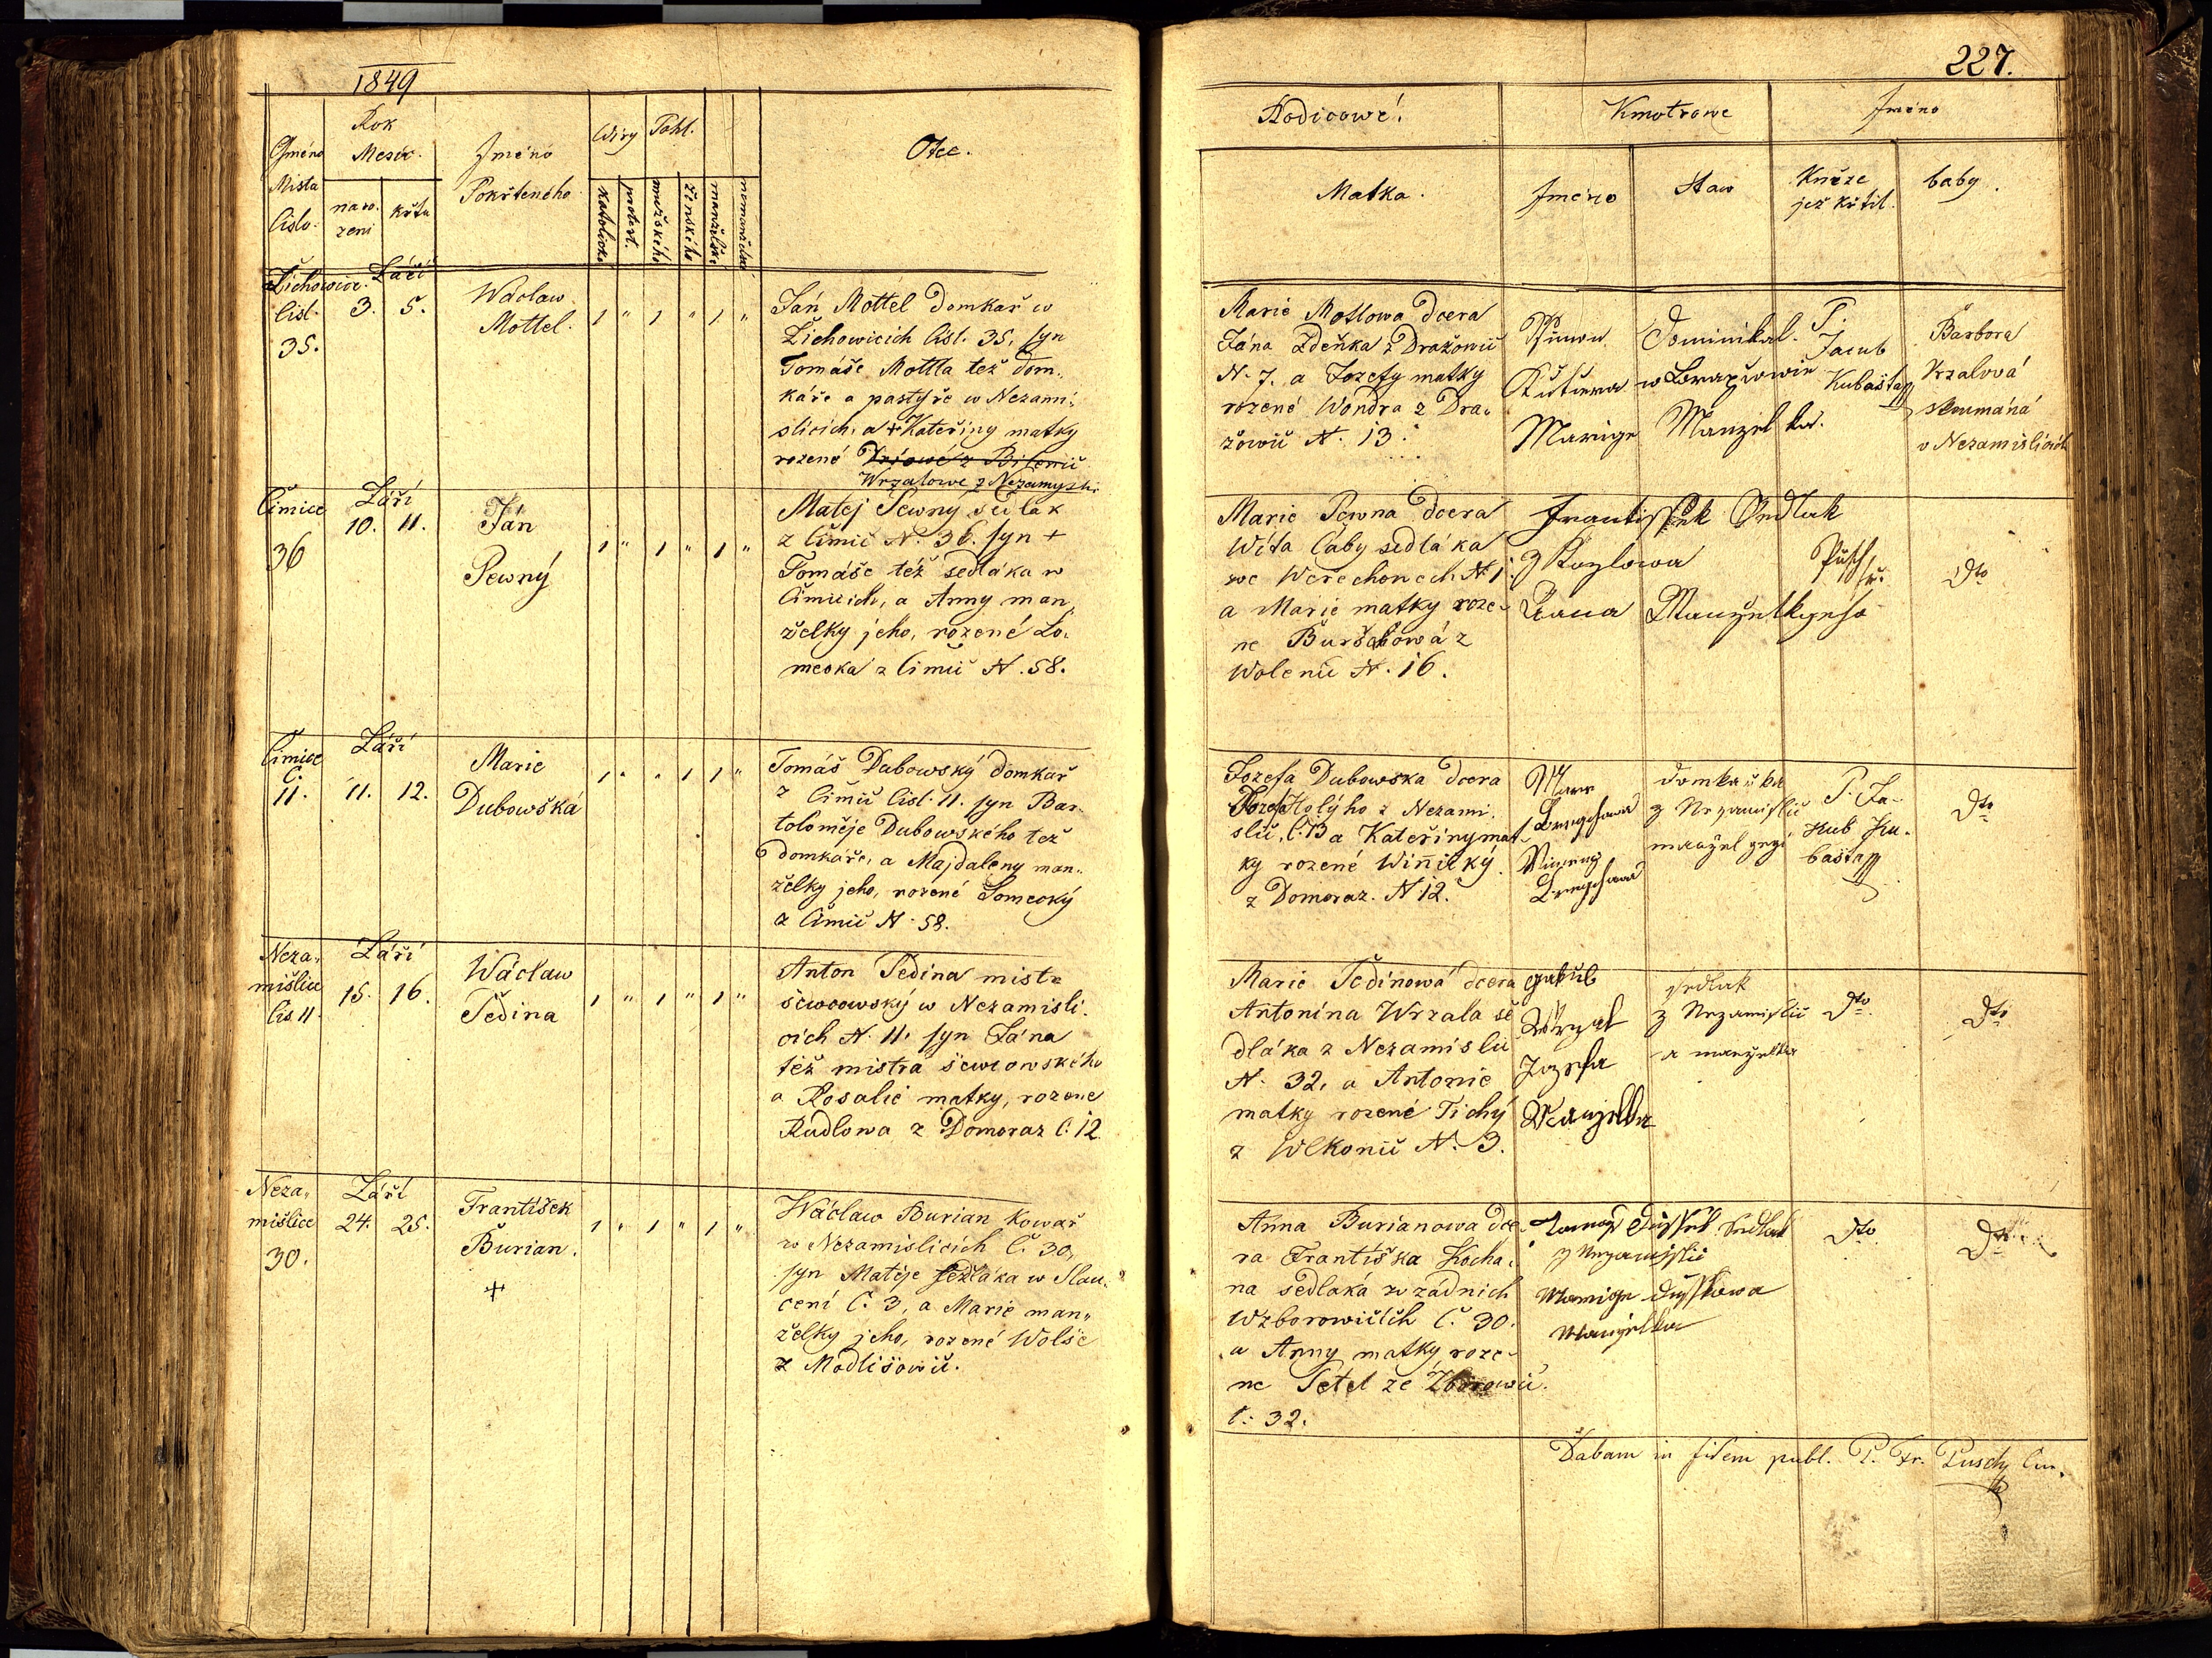 1849
Gméno
Místa
Čislo.
Rok
Mesíc.
naro.
zení
křtu
Jméno
Pokřteného
Wíry
Pohl.
katolické
protest.
mužského
ženského
manželské
nemanželské
Otec.
Žichowice.
Čisl.
35.
Září
3. 5.
Wáclaw
Mottel.
1 " 1 " 1 "
Ján Mottel domkař w
Žichowicích Čísl. 35, syn
Tomáše Mottla též dom„
káře a pastýře w Nezami„
slicich, a + Kateřiny matky
rozené
Wrzalowe z Nezamyslic
Čimice
36
Září
10. 11.
Ján
Pewný
1 " 1 " 1 "
Matěj Pewný sedlák
z Čimic N. 36. syn +
Tomáše též sedláka w
Čimicich, a Anny man„
želky jeho, rozené Lo„
mecka z Čimic N. 58.
Čimice
Č.
11.
Září
11. 12.
Marie
Dubowská
1 " " 1 1 "
Tomáš Dubowský domkař
z Čimic Čisl. 11. syn Bar„
toloměje Dubowského též
domkáře, a Majdaleny man„
želky jeho, rozené Lomecký
z Čimic N. 58.
Neza„
mišlice
Čis 11.
Září
15. 16.
Wáclaw
Tedina
1 " 1 " 1 "
Anton Tedina mistr
šewcowský w Nezamisli„
cích N. 11. syn Jána
též mistra šewcowského
a Rosalie matky, rozene
Rudlowa z Domoraz Č. 12.
Neza„
mišlice
30.
Září
24. 25.
František
Burian.
+
1 " 1 " 1 "
Wáclaw Burian kowář
w Nezamislicích Č. 30,
syn Matěje sedláka w
cení Č. 3, a Marie man„
želky jeho, rozené Wolše
z Modlišowic.
227.
Rodicowé!
Kmotrowe
Jméno
Matka.
Jméno
Staw
Kněze
jež křtil.
baby.
Marie Motlowa dcera
Jána Zdeňka z Dražowic
N. 7. a Jozefy matky
rozené Wondra z Dra„
žowic N. 13.
Marige
Manzelka.
P.
Jacub
Kubašta
Barbora
Vrzalová
skoumáná
v Nezamislicích
Marie Pewna dcera
Wíta Čaby sedláka
we Werechowech N. 1
a Marie matky roze„
ne Buršíkowá z
Wolenic N. 16.
Frantissek Sedlak
z Kozlowa
Manzelka geho
Pusch
Dto
Jozefa Dubowska dcera
Jozefa Holýho z Nezami„
slic, Č. 13 a Kateřiny mat„
ky rozené Winický
z Domoraz. N 12.
domkařka
z Nezamislic
manzel gegi
P. Ja„
kub Ku„
bašta
Dto
Marie Tedinowá dcera
Antonína Wrzala se
dláka z Nezamislic
N. 32. a Antonie
matky rozené Tichý
z Wlkonic N. 3.
Jakub
Wrzal
Jozefa
Manzelka
sedlak
z Nezamislic
a manzelka
Dto
Dto
Anna Burianowa dce„
ra Františka Kocha„
na sedláká w zádnich
Wzborowičich Č. 30.
a Anny matky roze„
ne Petel ze Zborowic.
Č. 32.
Sedlak
z Nezamislic
Marige
Manzelka
Dto
Dto
Dabam in fidem publ. P. Fr. Pusch